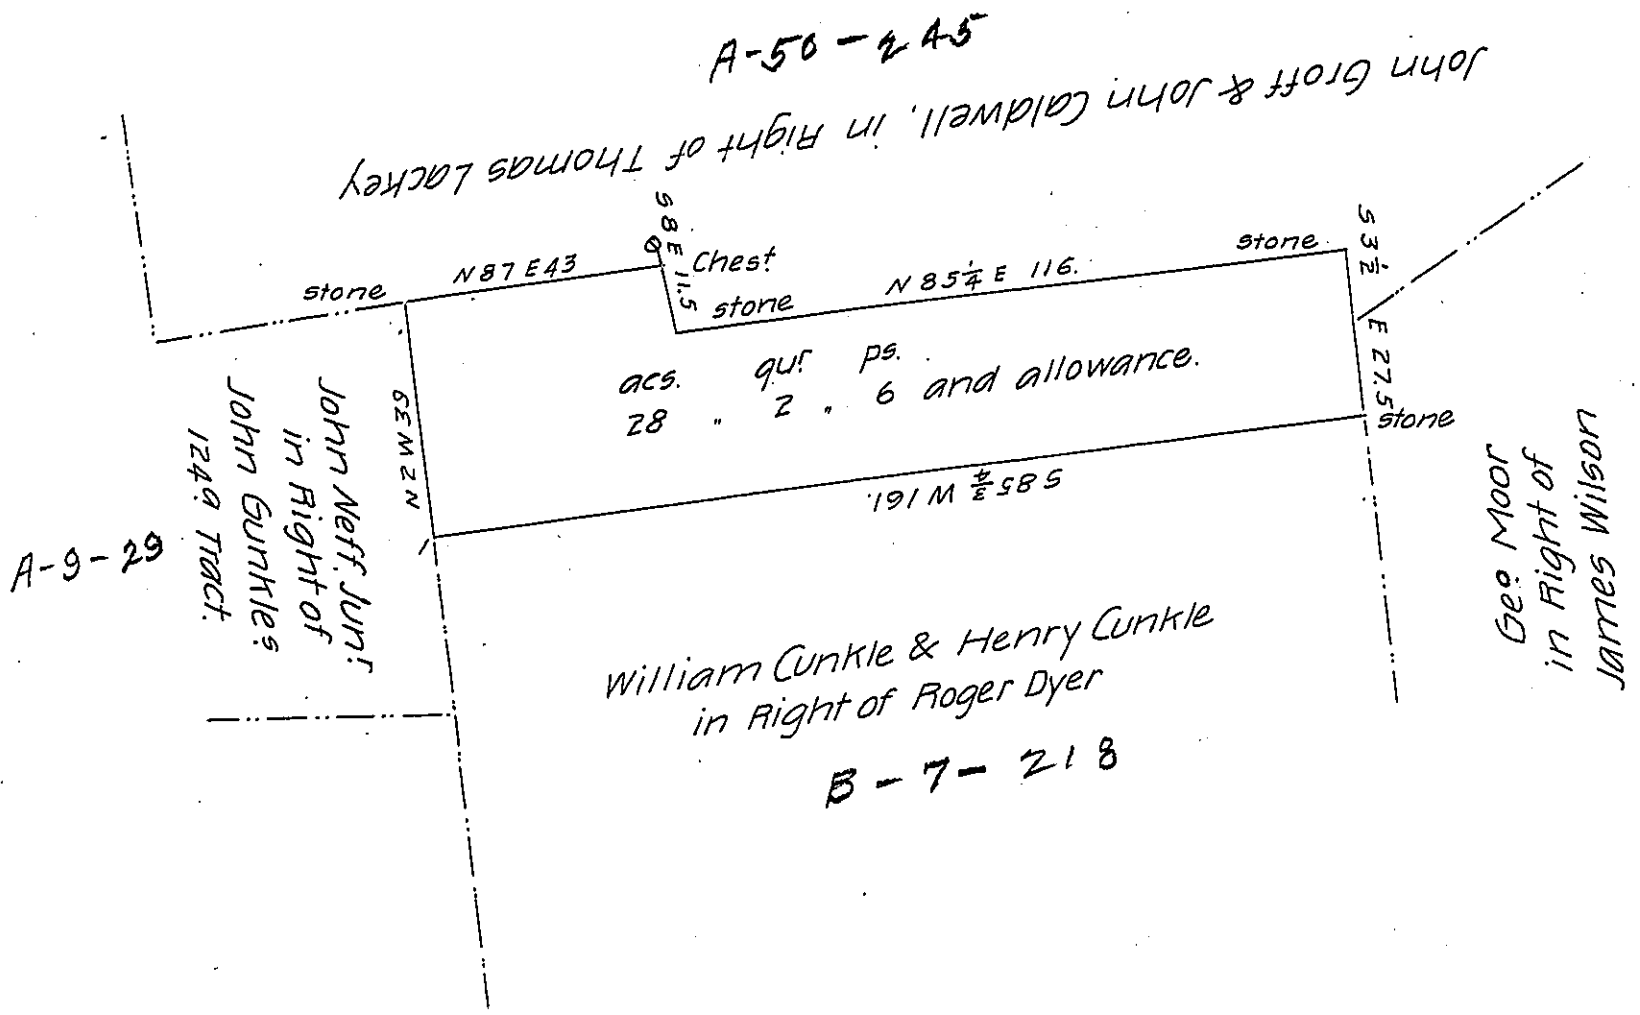 A-50-245
John Groff & John Caldwell, in Right of Thomas Lackey
S 8 E 11.5
Chest
N 87 E 43
stone
stone
N 85 1/4 E 116.
stone
S 3 1/2 E 27.5
stone
acs. qur ps.
28 " 2 " 6 and allowance.
N 2 W 39
S 85 3/4 W 161.
John Neff Junr
in Right of
John Gunkles
1249 Tract.
A-9-29
Geo Moor
in Right of
James Wilson
William Cunkle & Henry Cunkle
in Right of Roger Dyer
B-7-218